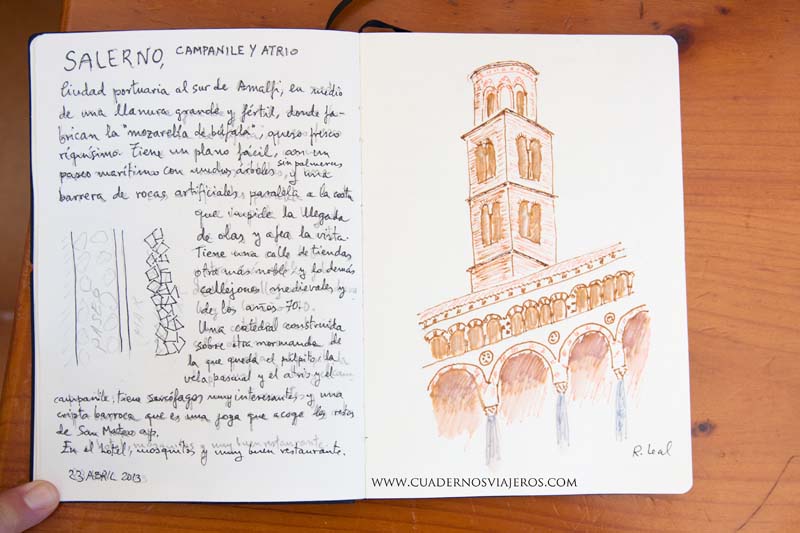 SALERNO, CAMPANILE Y ATRIO
Ciudad portuaria al sur de Amalfi, en medio
de una llanura grande y fértil, donde fa-
brican la "mozarella de búfala", queso fresco
riquísimo. Tiene un plano fácil, con un
paseo marítimo con muchos árboles, sin palmeras, y una
barrera de rocas artificiales paralela a la costa
que impide la llegada
de olas y afea la vista.
Tiene una calle de tiendas
otra más noble y lo demás
callejones medievales y
de los años 70.
Una catedral construida
sobre otra normanda de
la que queda el púlpito, la
vela pascual y el atrio y el
campanile; tiene sarcófagos muy interesantes y una
cripta barroca que es una joya que acoge los restos
de San Mateo ap.
En el hotel, mosquitos y muy buen restaurante.
23 ABRIL 2013
PASEO
MAR
R. Leal
WWW.CUADERNOSVIAJEROS.COM